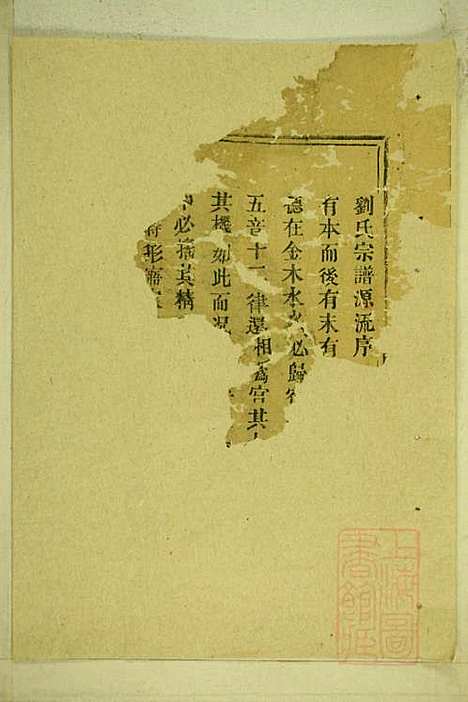 劉氏宗譜源流序
有本而後有末有
德在金木水火必歸
五音十二律還相爲宮其
其機如此而況
必擒其精
將形
上海圖
書館藏